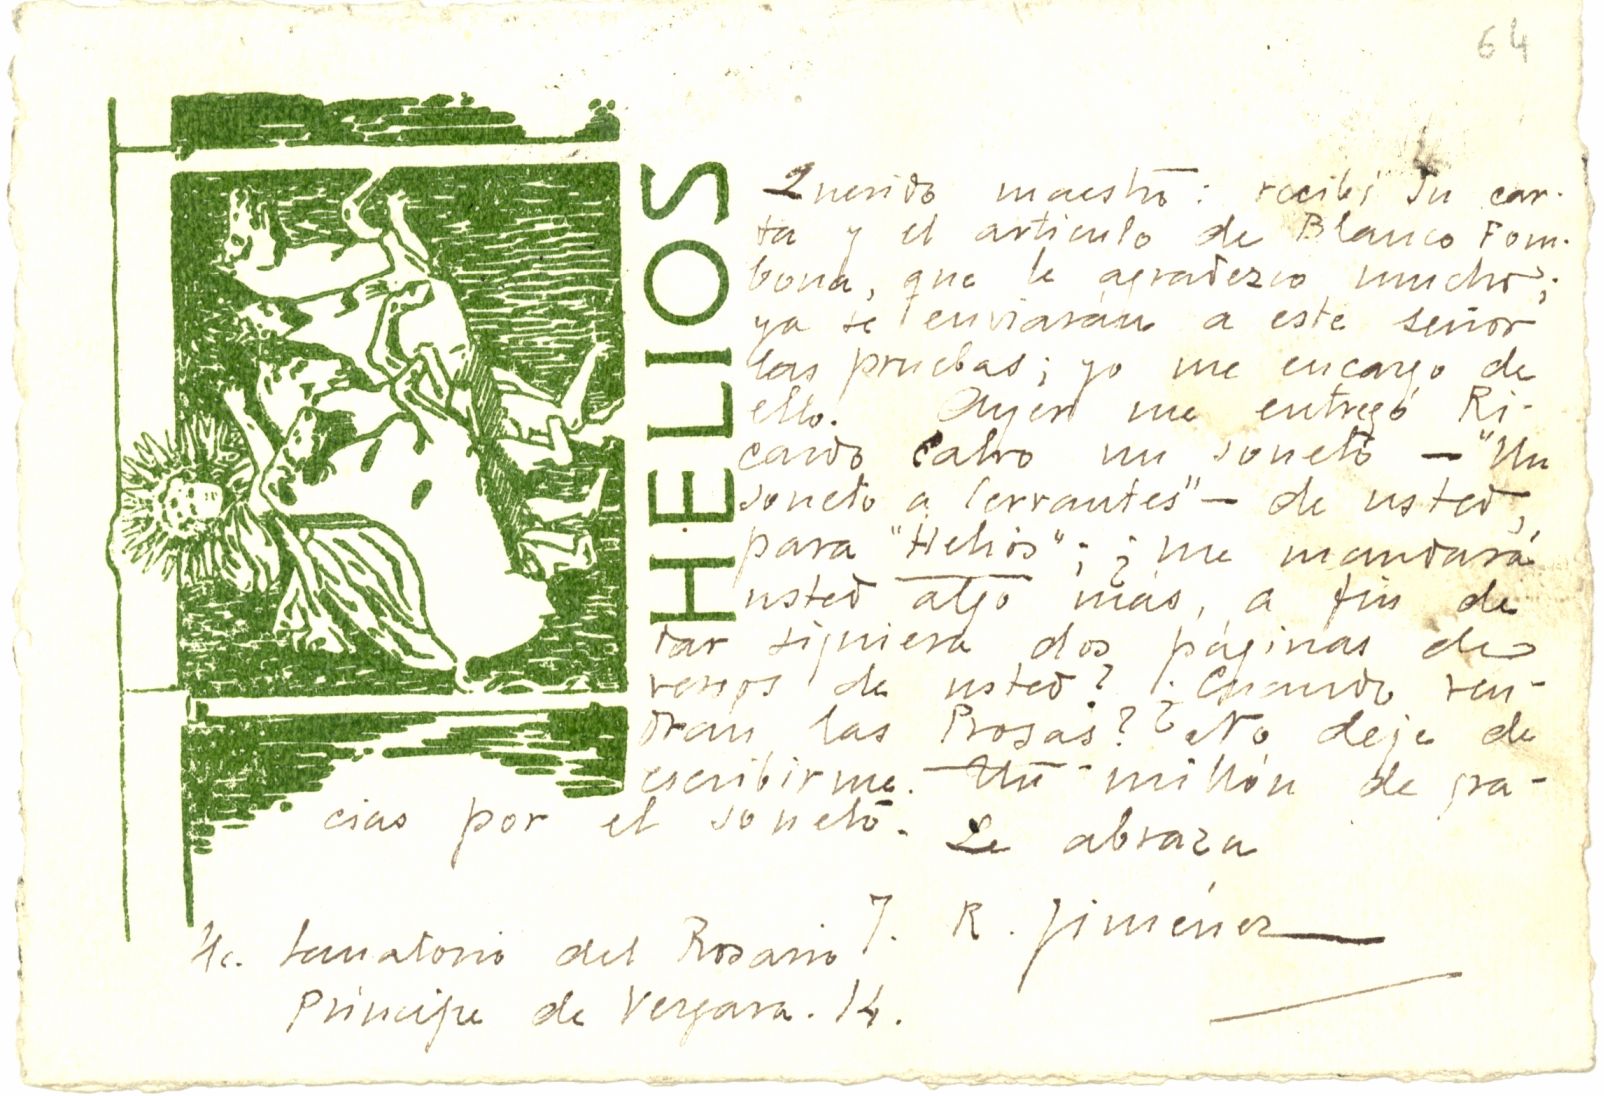 64
HELIOS
Querido maestro: recibí su car-
ta y el artículo de Blanco Fom-
bona, que le agradezco mucho;
ya se enviarán a este señor
las pruebas; yo me encargo de
ello. Ayer me entregó Ri-
cardo Calvo un soneto — "Un
soneto a Cervantes" — de usted,
para "Helios"; ¿me mandará
usted algo más, a fin de
dar siquiera dos páginas de
versos de usted? ¿Cuando ven-
dran las Prosas? No deje de
escribirme. — Un millón de gra-
cias por el soneto.
Le abraza
J. R. Jiménez
Sanatorio del Rosario
Príncipe de Vergara. 14.